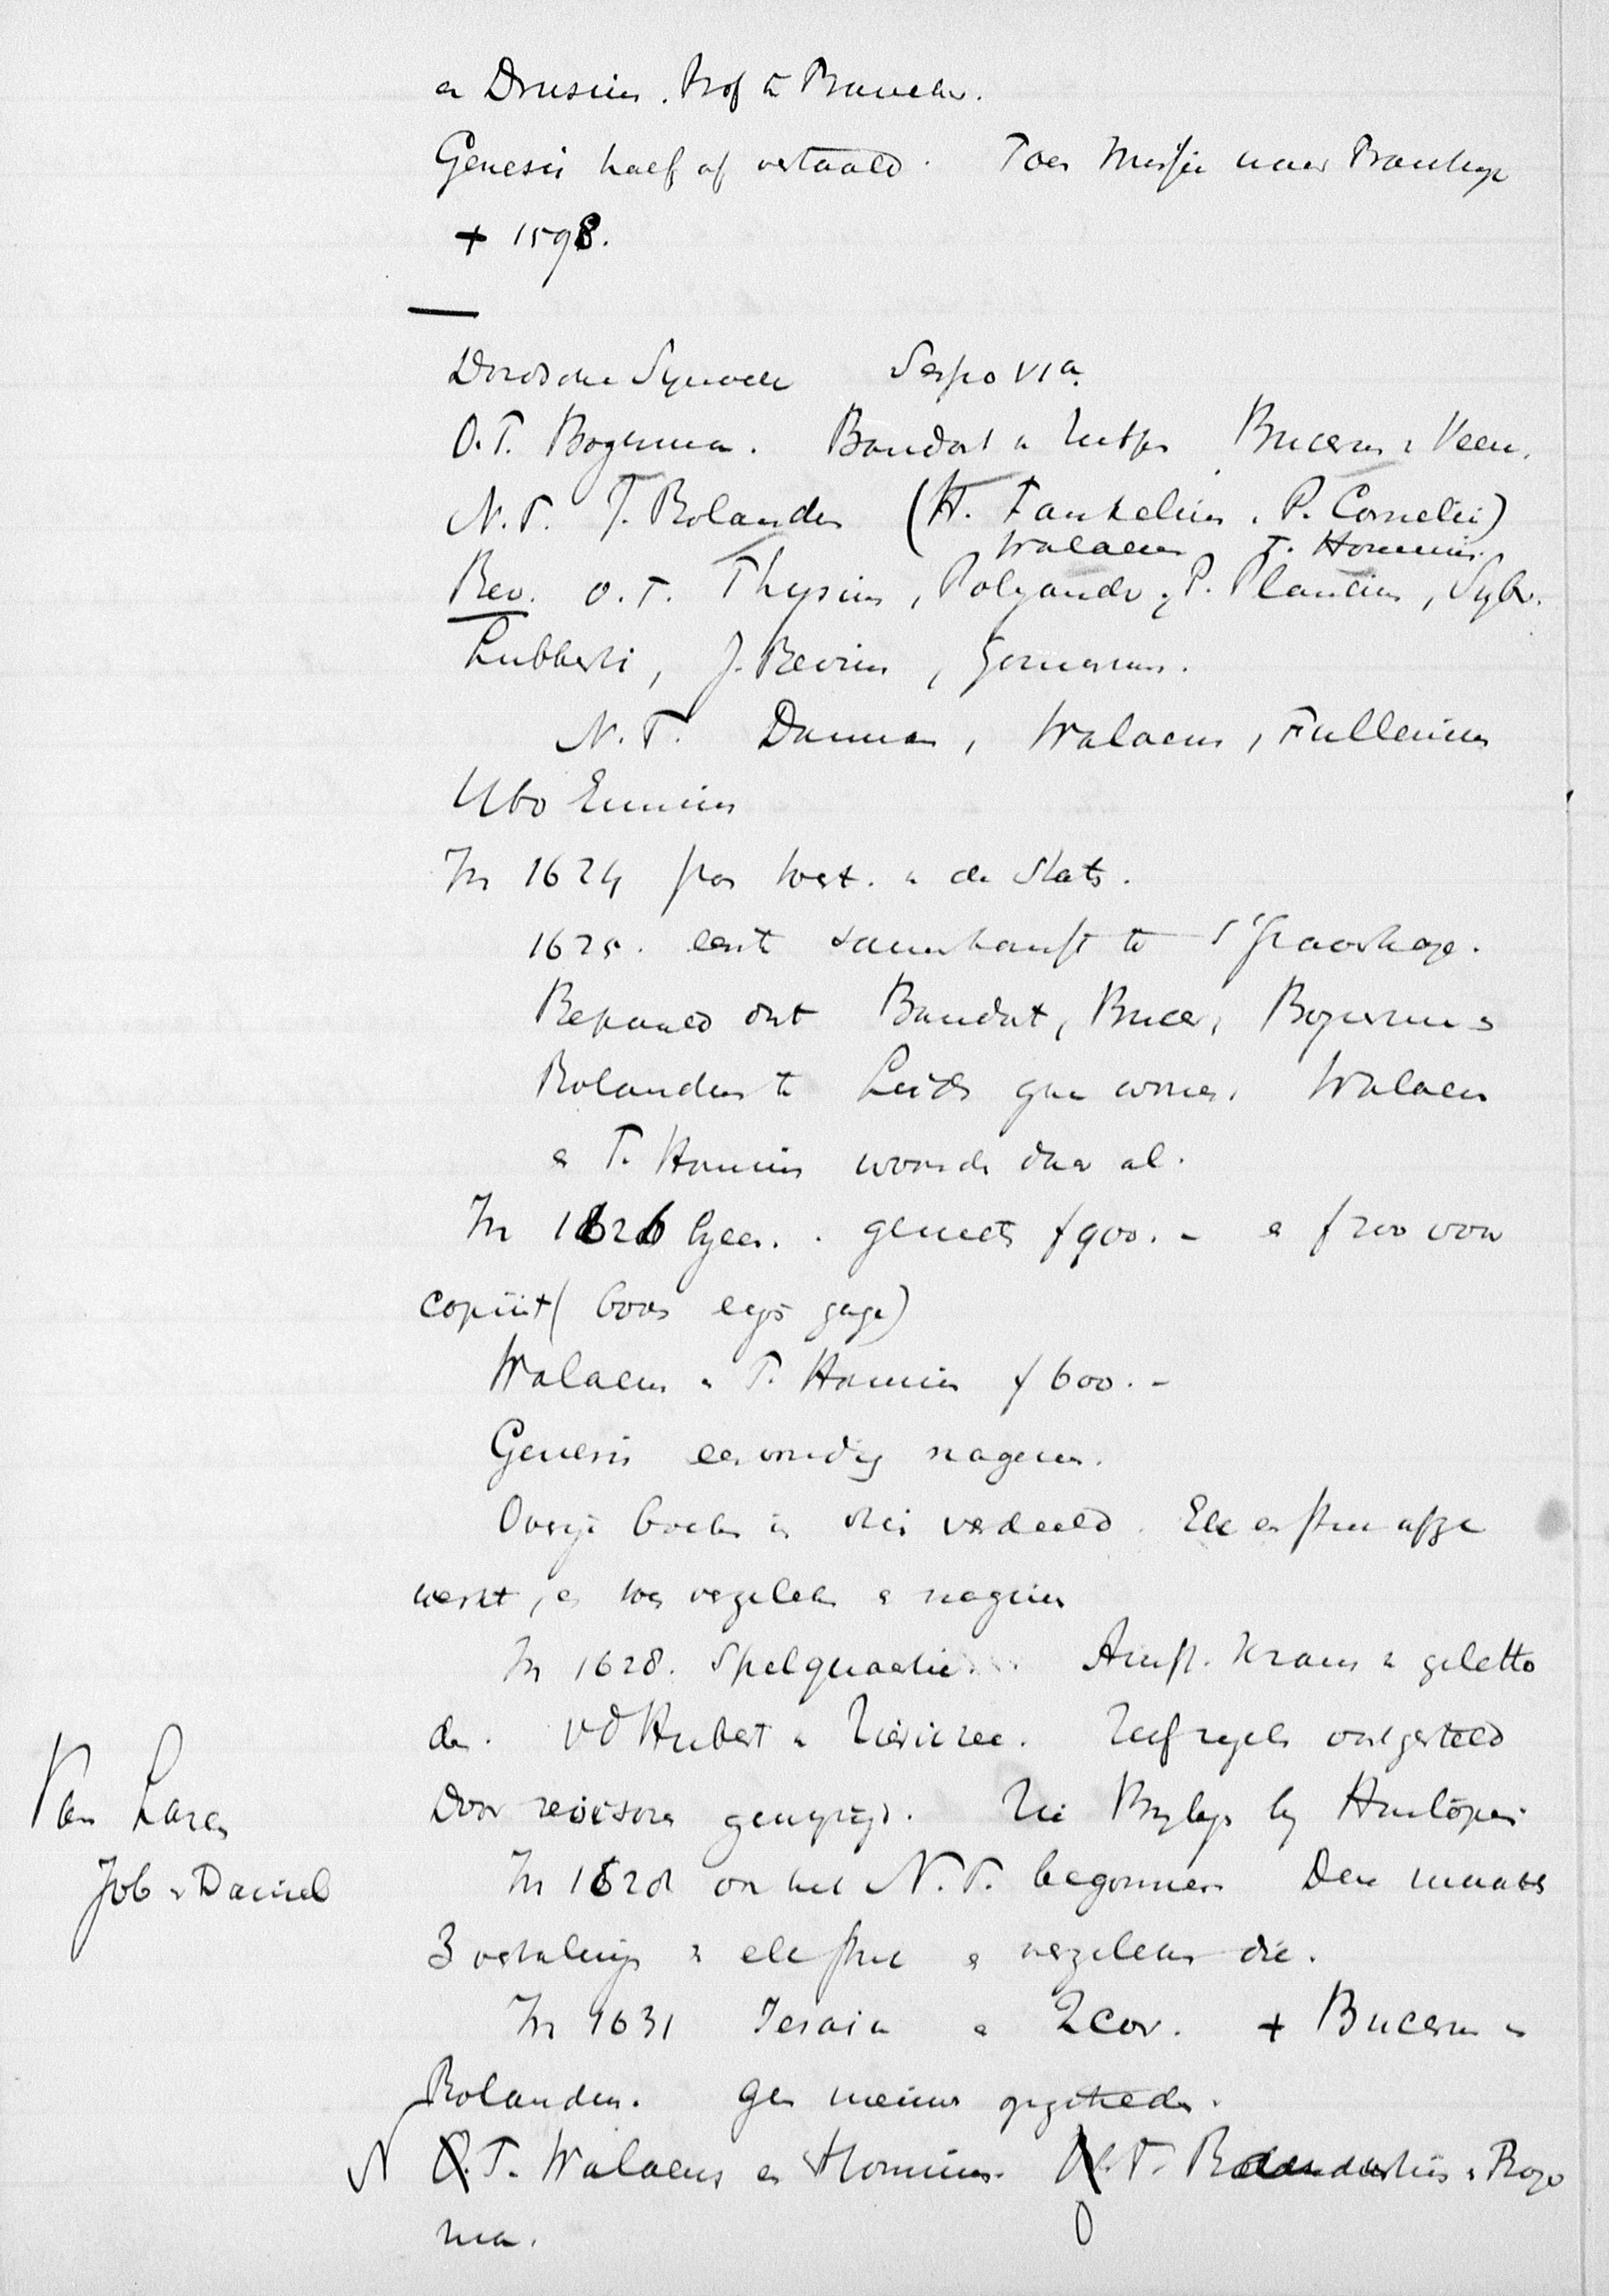 en Drusius. Prof te Franeker.
Genesis half af vertaald. Toen Marnix naar Frankrijk
+ 1598.
Dordsche Synode Sessio VIa
O.T. Bogerman. Baudart te Zutfen Bucerus Veere.
N.T. J. Rolandus (H. Faukelius. P. Cornelii)
Walaeus F. Hommius
Rev. O.T. Thysius, Polyander, P. Plancius, Sybr.
Lubberti, J. Revius, Gomarus.
N.T. Damman, Walaeus, Fullenius
Ubo Emmius
In 1624 toest. de Staten.
1625. eerste samenkomst te 's Gravenhage.
Bepaald dat Baudart, Bucer, Bogerman en
Rolandus te Leiden gaan wonen. Walaeus
en F. Hommius woonden daar al.
In 1626 geniet f 900.- en f 200 voor
copiist (boven eigen gage)
Walaeus F. Hommius f 600.-
Genesis eenvoudig nagezien.
Overige boeken in drie verdeeld. Elk een stuk afge
werkt, en toen vergeleken en nagezien
In 1628. Spelquaestie. Amst. Kramer geletto
den. vd Hubert te Zierikzee. Zelf regels vastgesteld
Door revisoren gewijzigd. Zie Bijlage bij Heinlopen
In 1628 aan het N.T. begonnen Deze maakten
3 vertalingen elk stuk en vergeleken die.
In 1631 Jesaia 2 Cor. + Bucerus en
Rolandus. Geen nieuwe
N T. Walaeus en Hommius. O T. Baudartius Boger
man.
Van Laren
Job Daniel